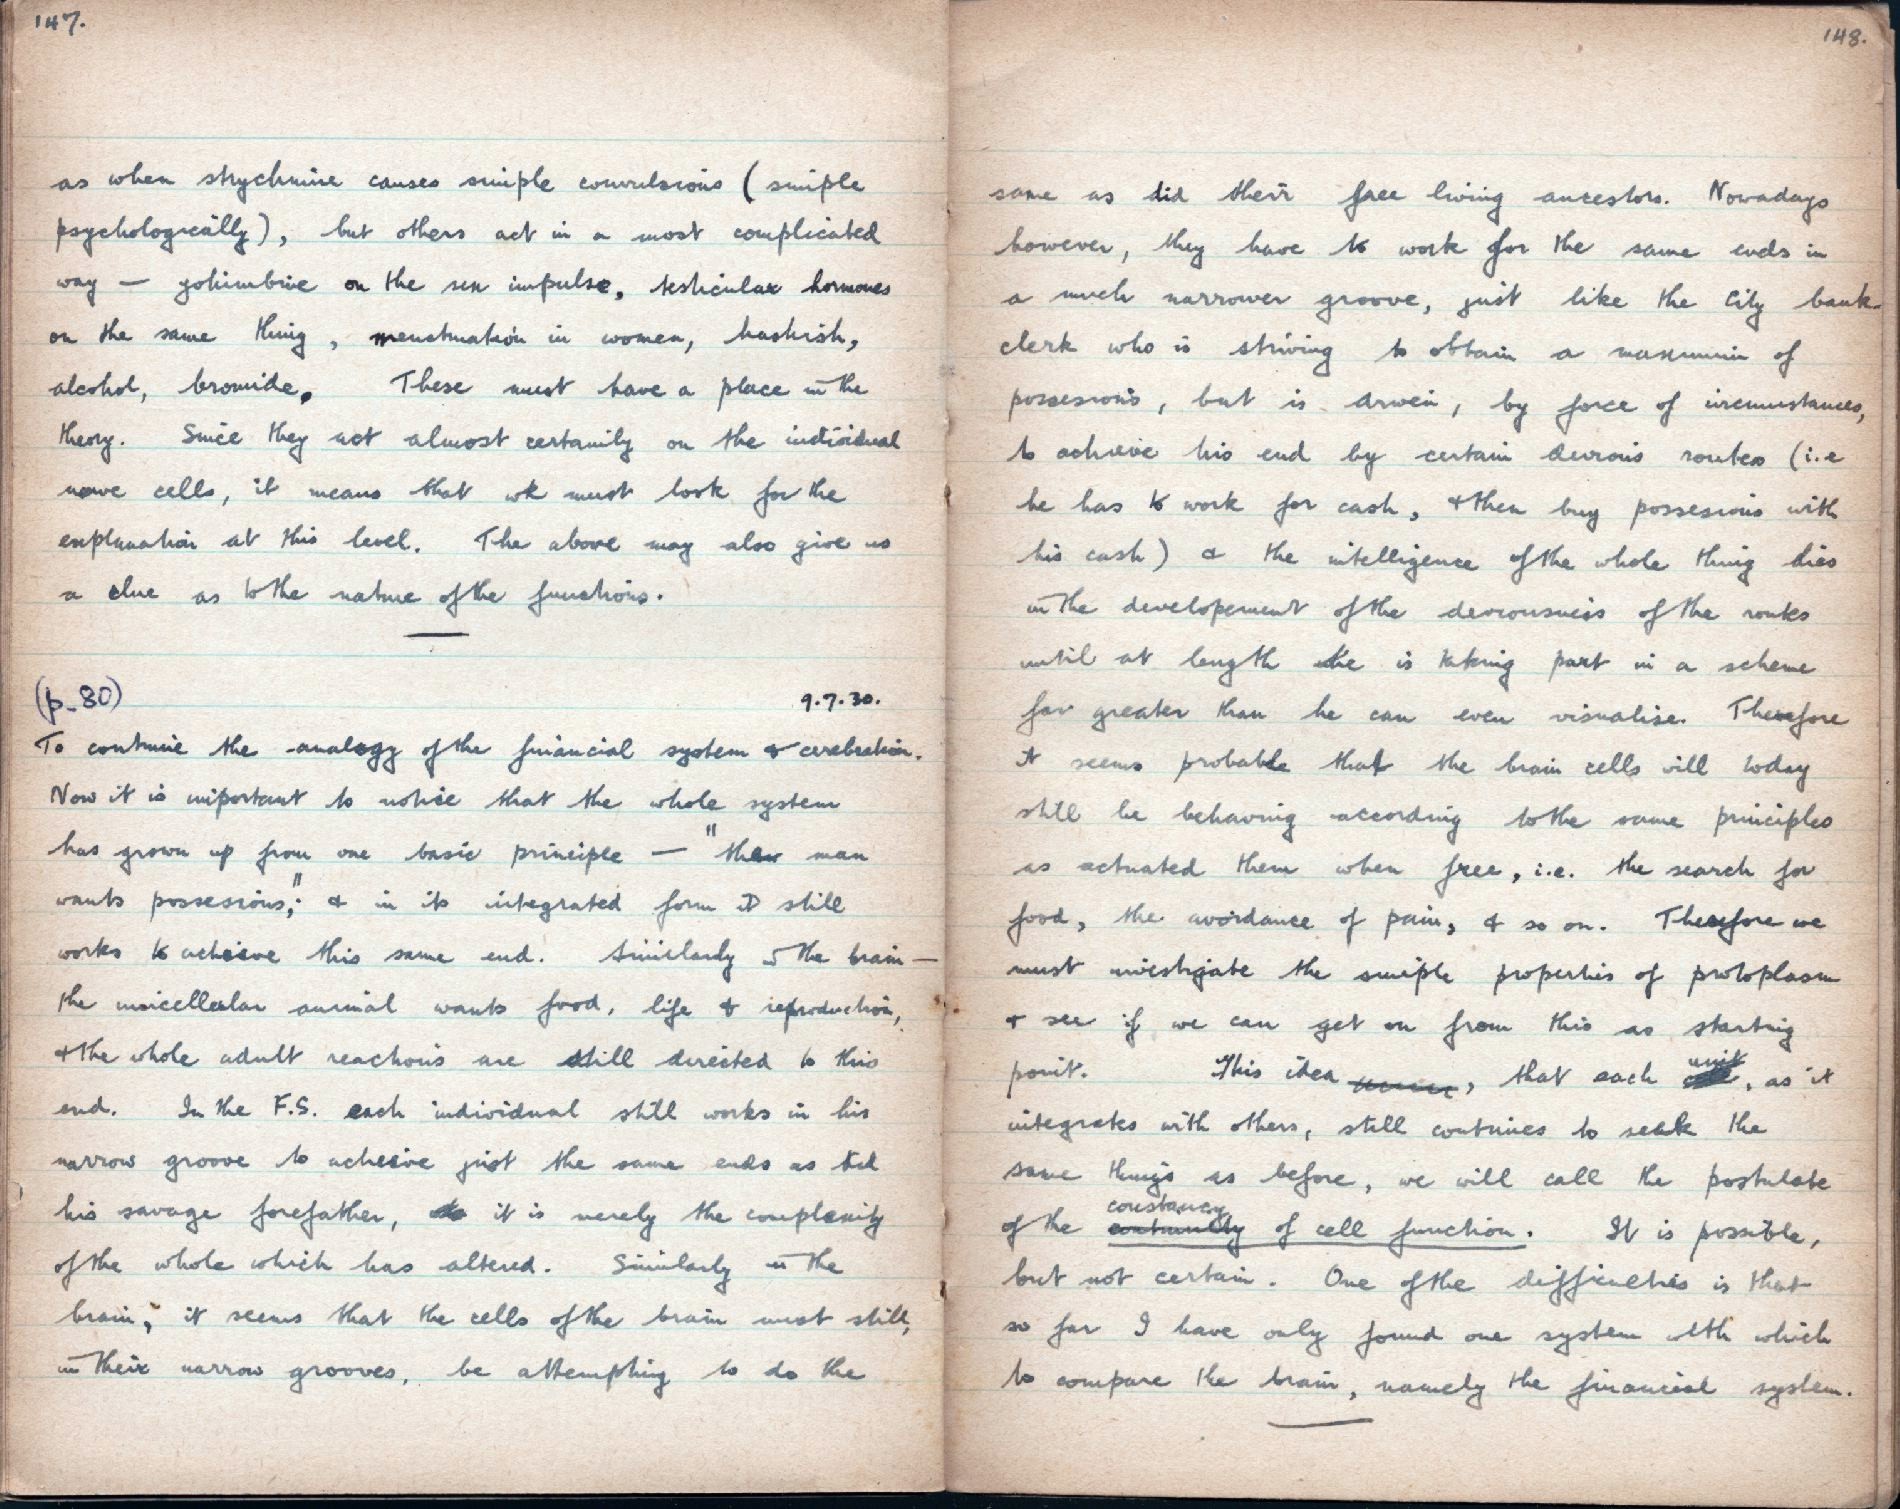 147.
as when strychnine causes simple convulsions (simple
psychologically), but others act in a most complicated
way — yohimbine on the sex impulse, testicular hormones
on the same thing, menstruation in women, hashish,
alcohol, bromide. These must have a place in the
theory. Since they act almost certainly on the individual
nerve cells, it means that we must look for the
explanation at this level. The above may also give us
a clue as to the nature of the functions.
(p_80) 9.7.30.
To continue the analogy of the financial system & cerebration.
Now it is important to notice that the whole system
has grown up from one basic principle — "the man
wants possesions," & in its integrated form it still
works to achieve this same end. Similarly in the brain —
the unicellular animal wants food, life & reproduction,
& the whole adult reactions are still directed to this
end. In the F.S. each individual still works in his
narrow groove to achieve just the same ends as did
his savage forefather, it is merely the complexity
of the whole which has altered. Similarly in the
brain, it seems that the cells of the brain must still,
in their narrow grooves, be attempting to do the
148.
same as did their free living ancestors. Nowadays
however, they have to work for the same ends in
a much narrower groove, just like the City bank-
clerk who is striving to obtain a maximum of
possesions, but is driven, by force of circumstances,
to achieve his end by certain devious routes (i.e
he has to work for cash, & then buy possesions with
his cash) & the intelligence of the whole thing dies
in the developement of the deviousness of the routes
until at length he is taking part in a scheme
far greater than he can even visualise. Therefore
it seems probable that the brain cells will today
still be behaving according to the same principles
as actuated them when free, i.e. the search for
food, the avoidance of pain, & so on. Therefore we
must investigate the simple properties of protoplasm
& see if we can get on from this as starting
point. This idea, that each unit, as it
integrates with others, still continues to seek the
same things as before, we will call the postulate
of the constancy of cell function. It is possible,
but not certain. One of the difficulties is that
so far I have only found one system with which
to compare the brain, namely the financial system.